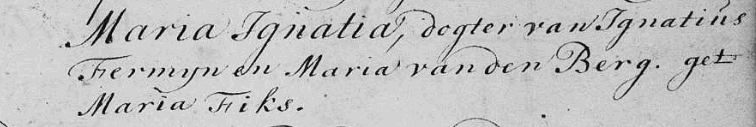 Maria Ignatia, dogter van Ignatius
Fermyn en Maria van den Berg. get
Maria Fiks.